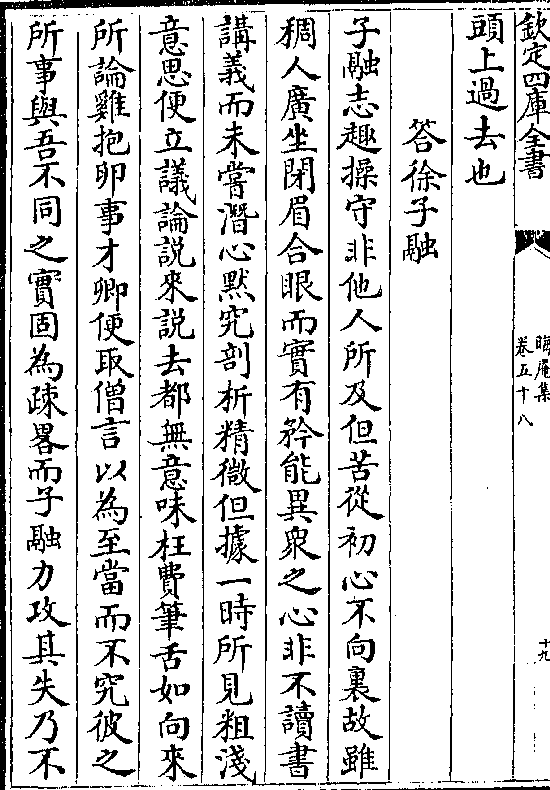 欽定四庫全書
晦庵集
卷五十八
十九
頭上過去也
答徐子融
子融志趣操守非他人所及但苦從初心不向裏故雖
稠人廣坐閉眉合眼而實有矜能異衆之心非不讀書
講義而未嘗潛心默究剖析精微但據一時所見粗淺
意思便立議論説來説去都無意味枉費筆舌如向來
所論雞抱卵事才卿便取僧言以為至當而不究彼之
所事與吾不同之實固為疎畧而子融力攻其失乃不